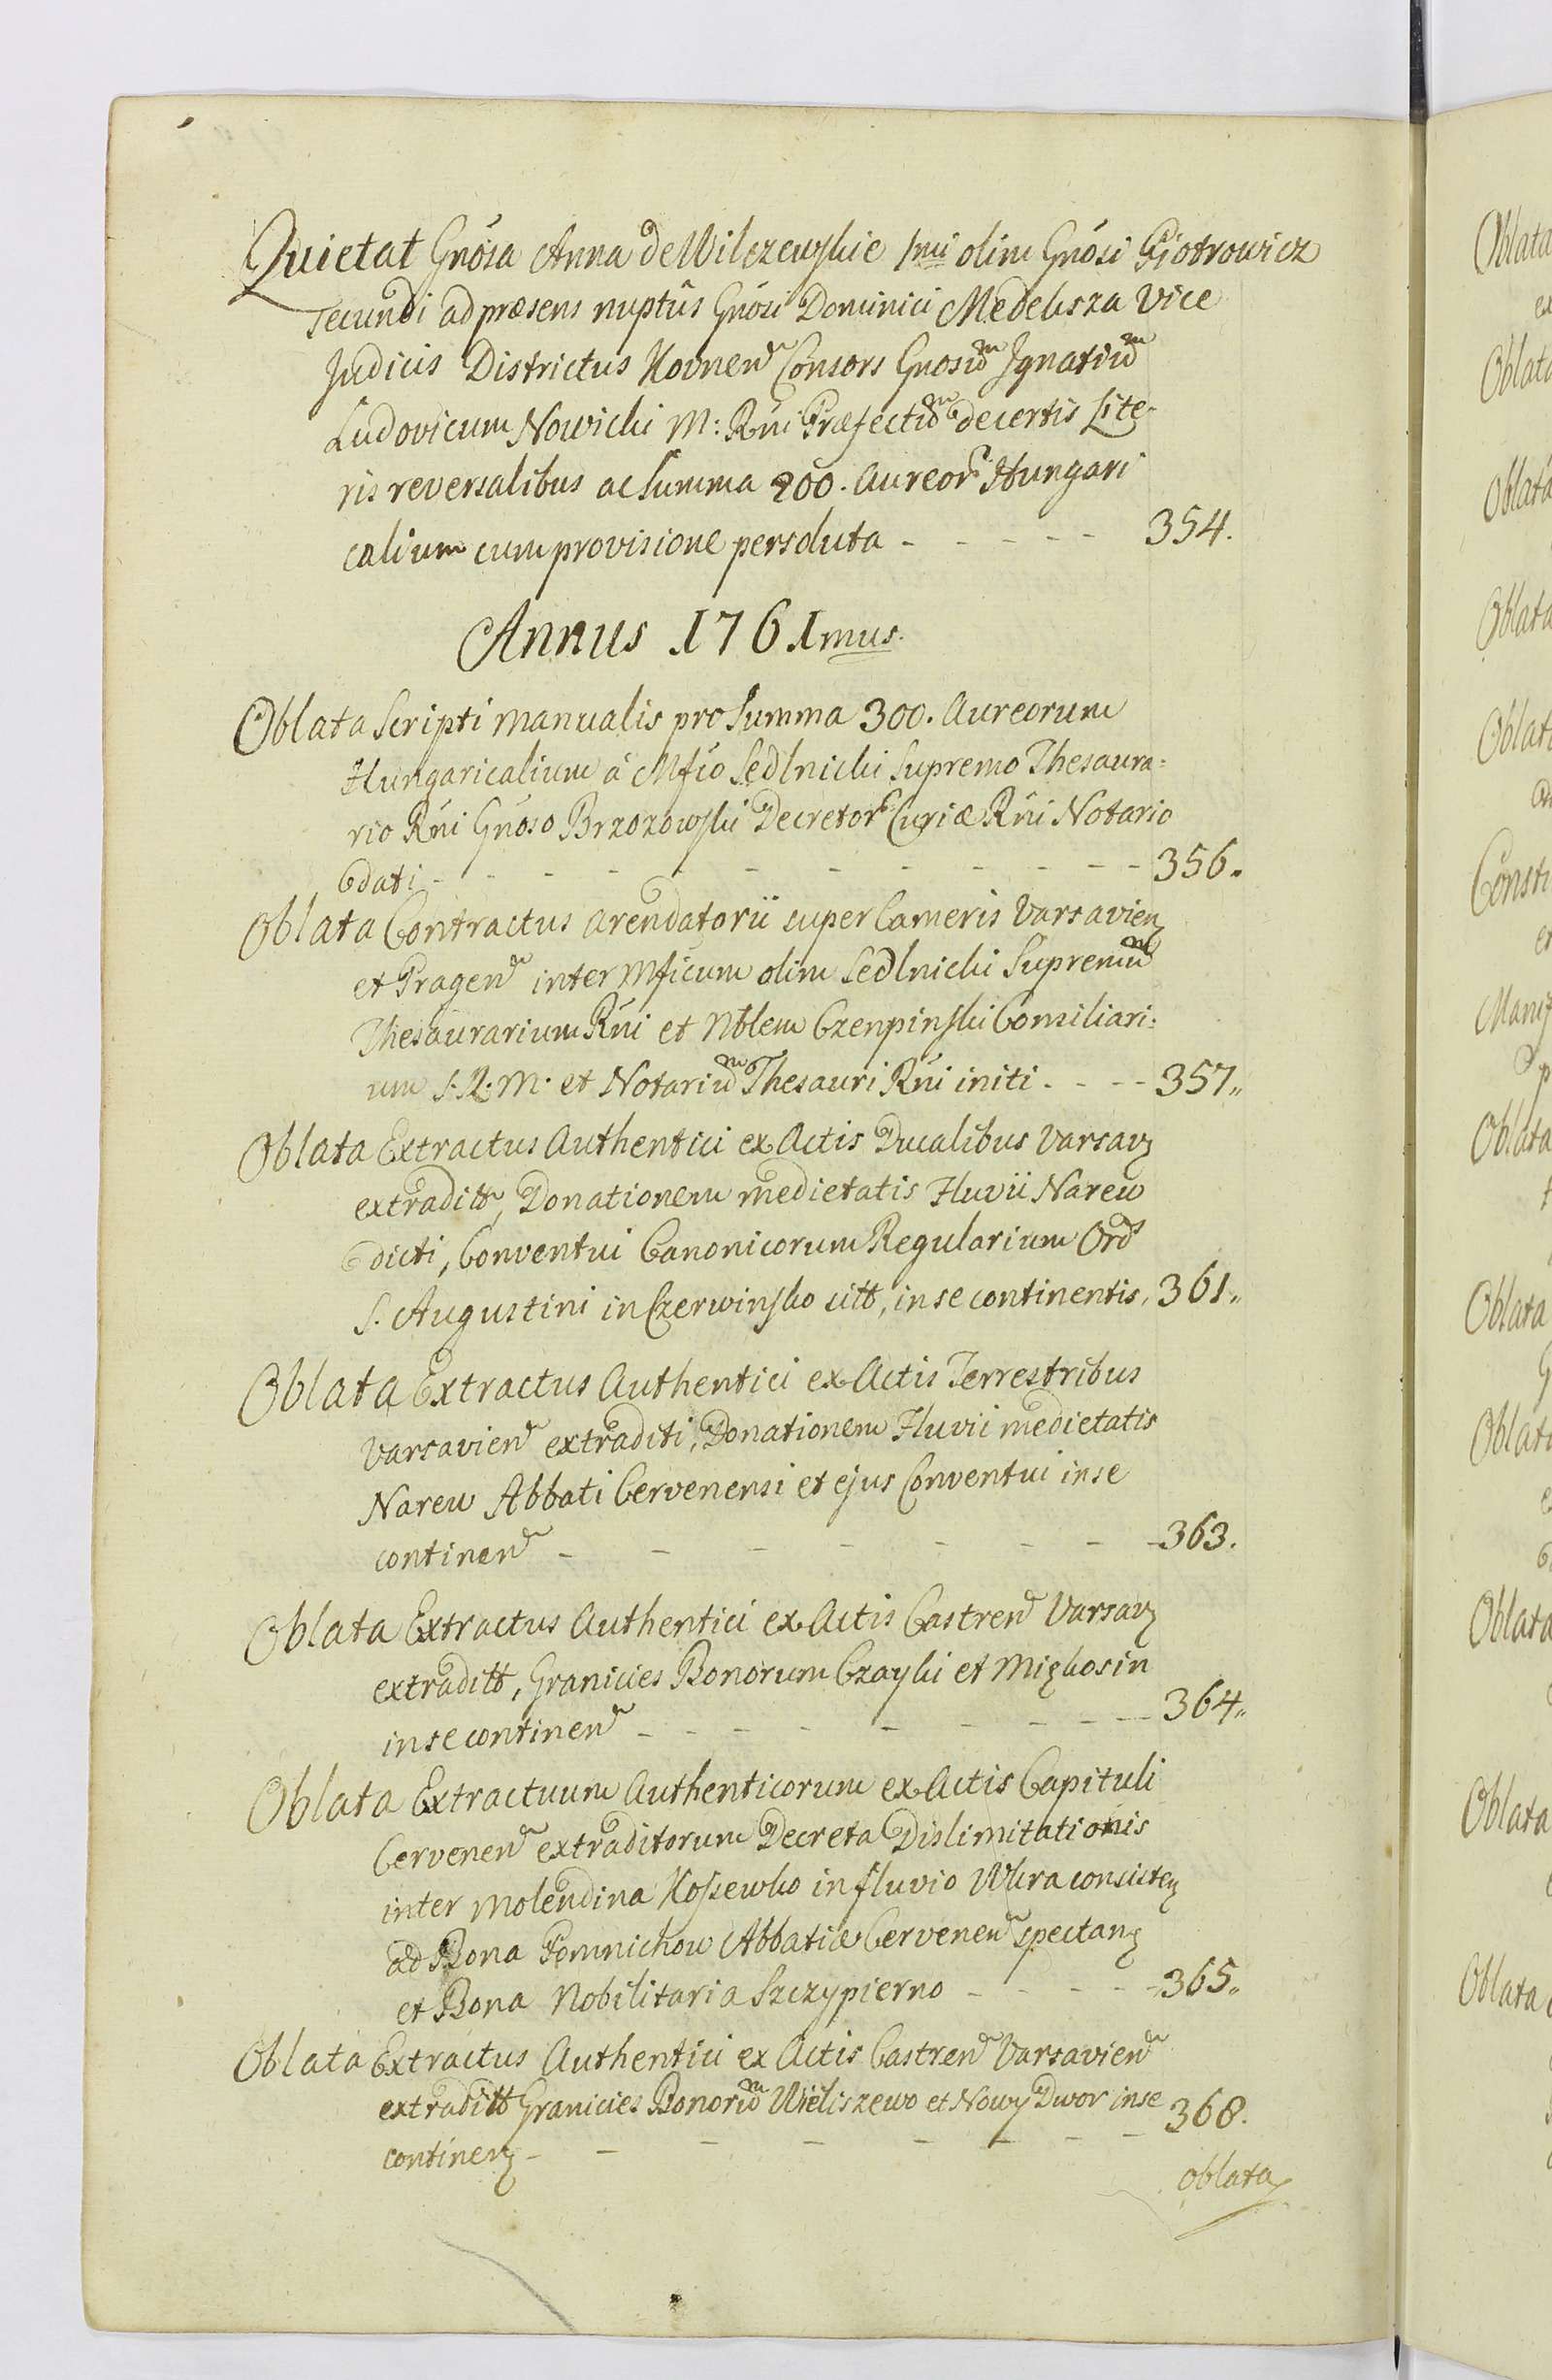 Quietat Gnósa Anna de Wilczewskie 1mi olim Gnósi Piotrowicz
secundi ad præsens nuptûs Gnósi Dominici Medeksza Vice
Judicis Districtus Kovnen Consors Gnosum Ignatium
Ludovicum Nowicki M: Rńi Præfectum de certis Lite-
ris reversalibus ac summa 200. Aureor Hungari
calium cum provisione persoluta - - - - - 354.
Annus 1761mus.
Oblata Scripti manualis pro Summa 300. Aureorum
Hungaricalium à Mfico Sedlnicki Supremo Thesaura=
rio Rńi Gnóso Brzozowski Decretor Curiæ Rńi Notario
dati - - - - - - - - - - 356.
Oblata Contractus arendatorii super Cameris Varsavien
et Pragen inter Mficum olim Sedlnicki Supremum
Thesaurarium Rńi et Nblem Czenpinski Consiliari=
um S: R: M: et Notarium Thesauri Rńi initi - - - - 357.
Oblata Extractus Authentici ex Actis Ducalibus Varsav
extraditt, Donationem medietatis Fluvii Narew
dicti, Conventui Canonicorum Regularium Ord
S. Augustini in Czerwinsko sitt, in se continentis, 361.
Oblata Extractus Authentici ex Actis Terrestribus
Varsavien extraditi, Donationem Fluvii medietatis
Narew Abbati Cervenensi et ejus Conventui in se
continen - - - - - - - - 363.
Oblata Extractus Authentici ex Actis Castren Varsav
extraditt, Granicies Bonorum Czayki et Miękosin
in se continen - - - - - - - - 364.
Oblata Extractuum Authenticorum ex Actis Capituli
Cervenen extraditorum Decreta Dislimitationis
inter Molendina Kossewko in fluvio Wkra consisten
ad Bona Pomnichow Abbatiæ Cervenen spectan
et Bona Nobilitaria Szczypierno - - - - - 365.
Oblata Extractus Authentici ex Actis Castren Varsavien
extraditt Granicies Bonorum Wieliszewo et Nowy Dwor in se 368.
continen - - - - - - - -
oblata